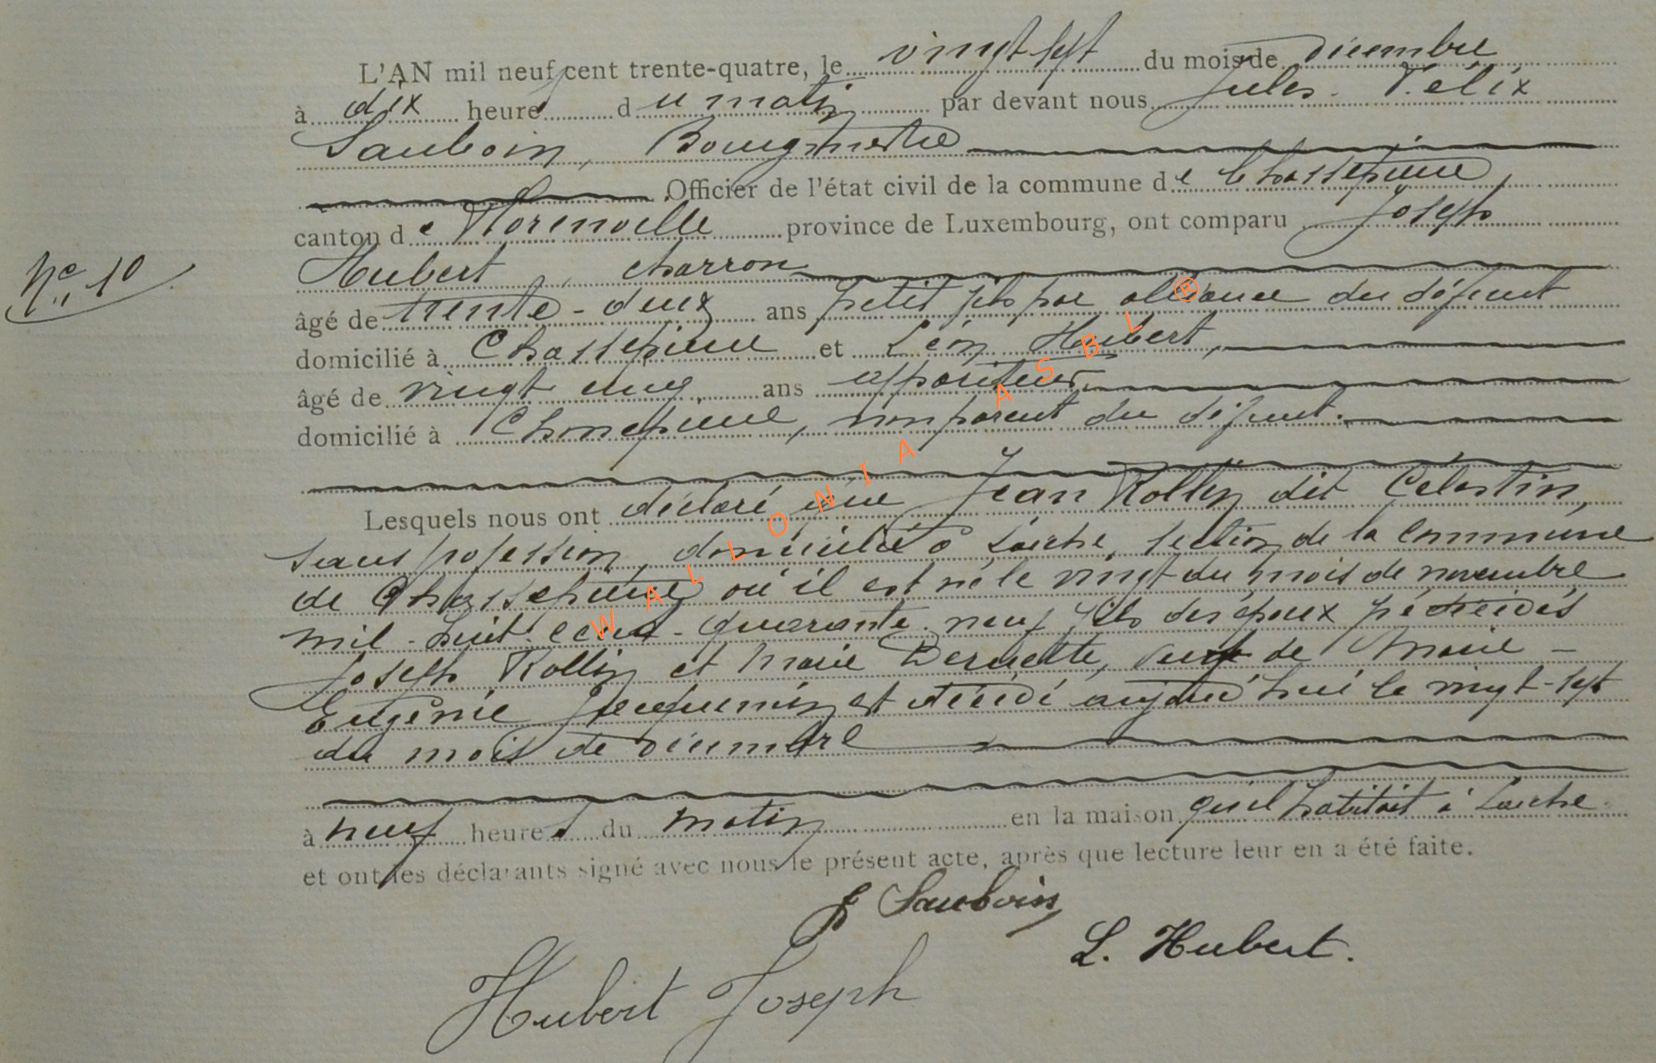 L'AN mil neuf cent trente-quatre, le vingt sept du mois de décembre
à dix heures du matin par devant nous Jules Félix
Sauboin, Bourgmestre
Officier de l'état civil de la commune de Chassepierre,
canton de Florenville province de Luxembourg, ont comparu Joseph
Nº 10
Hubert, charron
âgé de trente-deux ans petit fils par alliance du défunt
domicilié à Chassepierre et Léon Hubert,
âgé de vingt cinq ans appariteur
domicilié à Chassepierre, non parent du défunt.
Lesquels nous ont déclaré que Jean Rollin dit Célestin,
sans profession, domicilié à Laiche, section de la commune
de Chassepierre où il est né le vingt du mois de novembre
mil-huit-cent-quarante-neuf fils des époux décédés
Joseph Rollin et Marie veuf de Marie-
Eugénie Jacquemin est décédé aujourd'hui le vingt-sept
du mois de décembre
à neuf heures du matin en la maison qu'il habitait à Laiche
et ont les déclarants signé avec nous le présent acte, après que lecture leur en a été faite.
J Sauboin
L. Hubert.
Hubert Joseph
WALLONIA ASBL ®